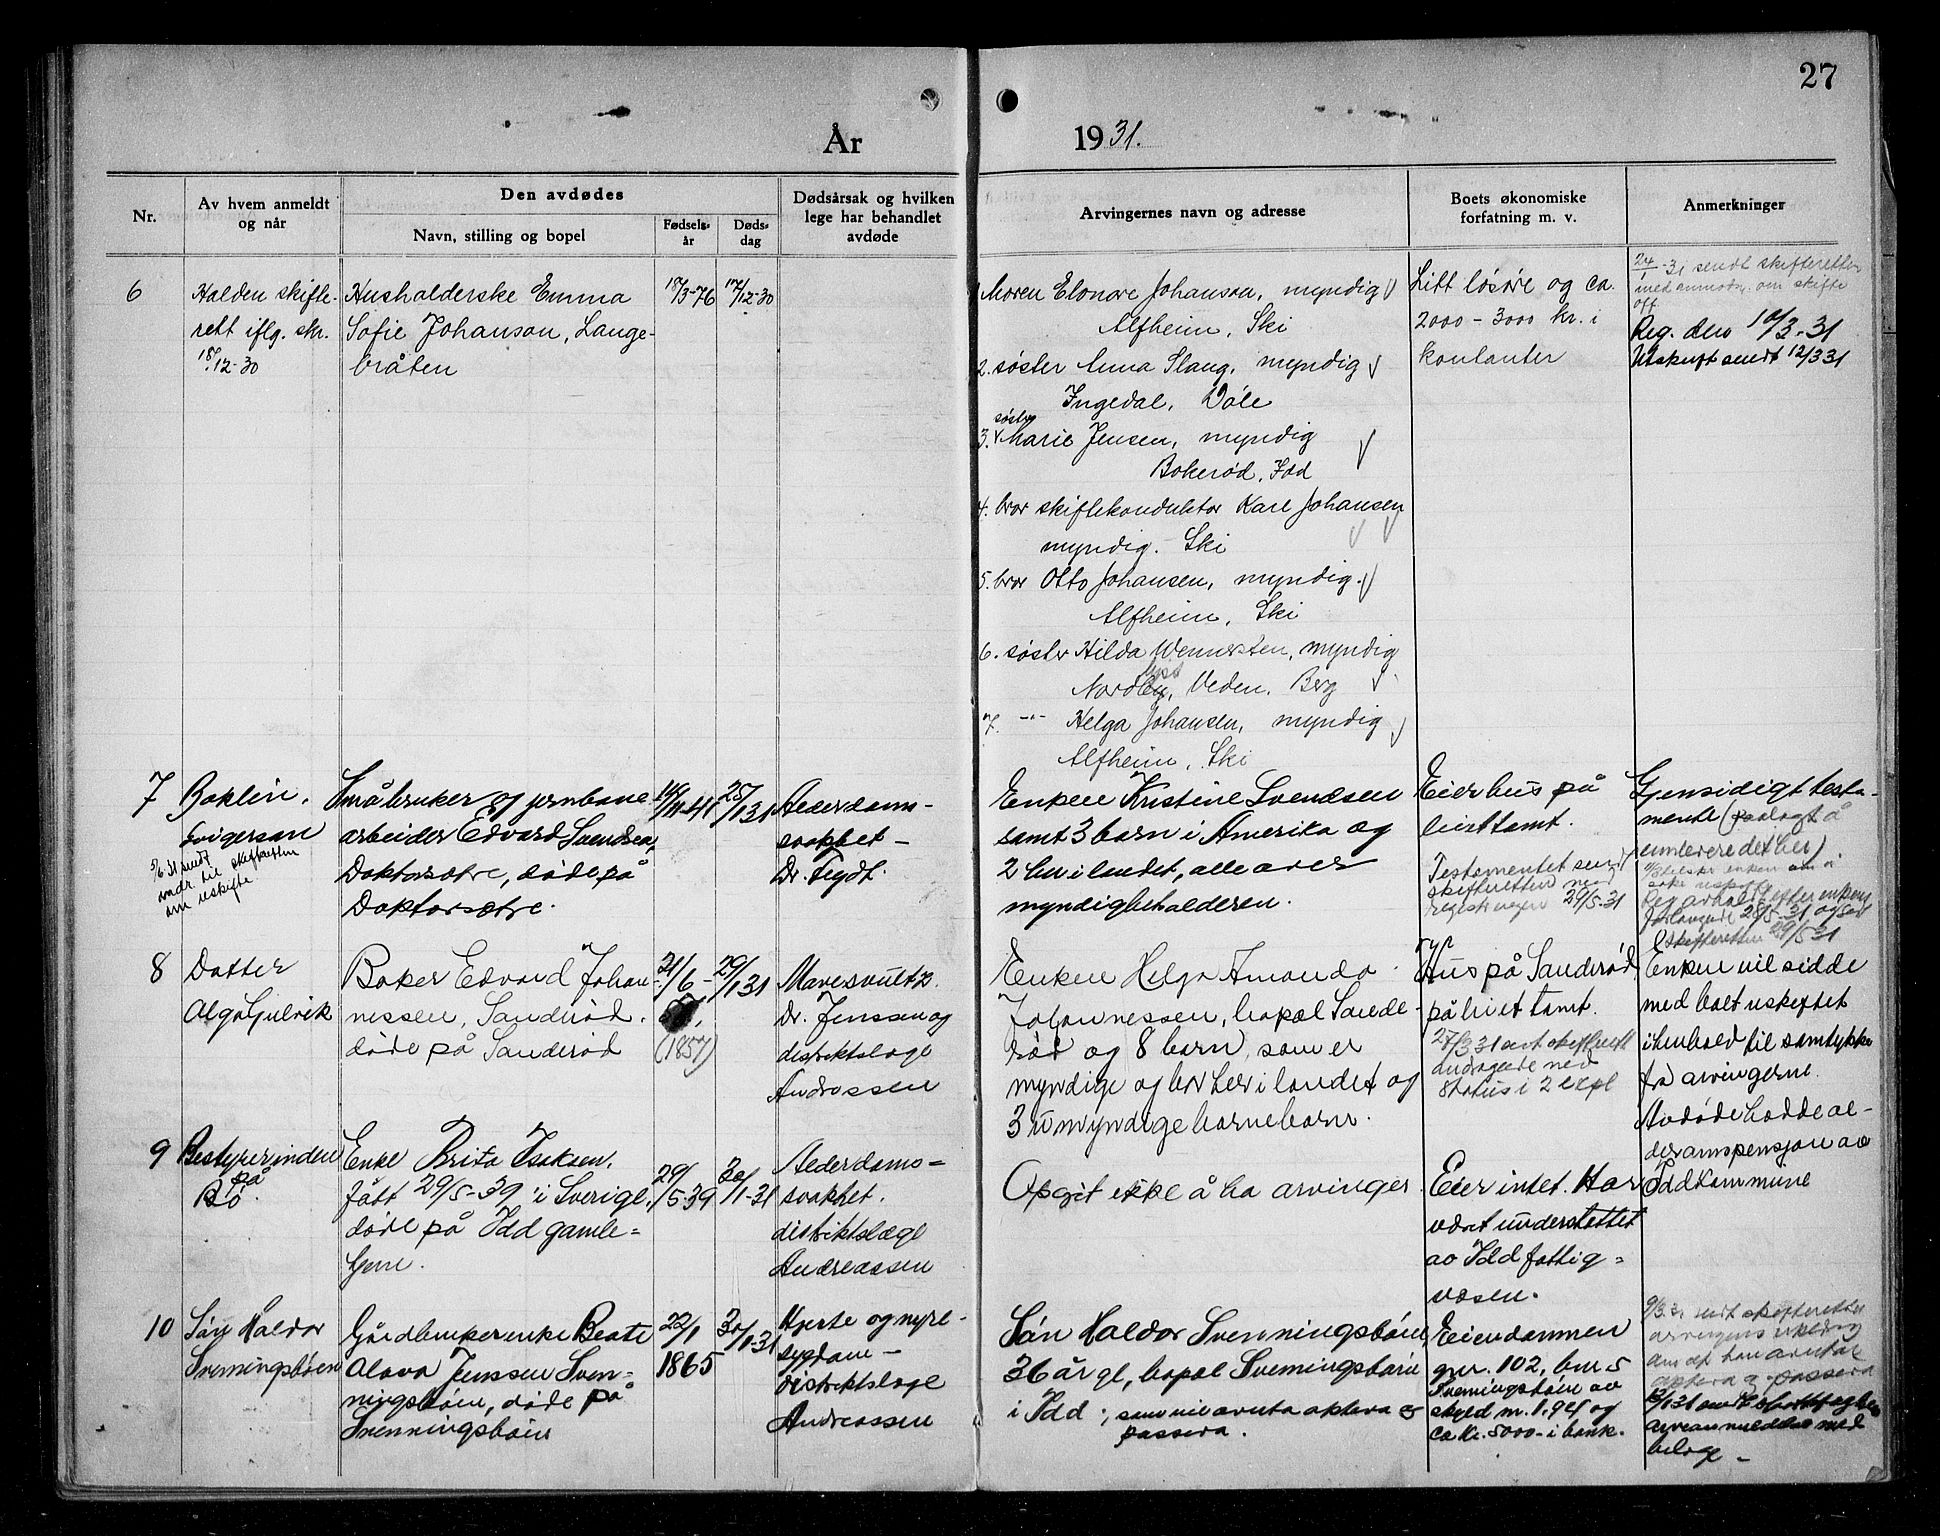 27
År 1931.
Nr.
Av hvem anmeldt
og når
Den avdødes
Navn, stilling og bopel
Fødsels-
år
Døds-
dag
Dødsårsak og hvilken
lege har behandlet
avdøde
Arvingernes navn og adresse
Boets økonomiske
forfatning m. v.
Anmerkninger
6
Halden skifte-
rett iflg. skr.
18/12-30
Husholderske Emma
Sofie Johanson, Lange-
bråten
18/3-76
17/12-30
1 Moren Elonore Johanson, myndig
Alfheim, Ski
2. søster Anna Slang, myndig
Ingedal, Dåle
søster
3. Marie Jensen, myndig
Bokerød, Idd
4. bror skiftekonduktør Karl Johansen
myndig. Ski
5. bror Otto Johansen, myndig.
Alfheim, Ski
6. søster Hilda Wennersten, myndig
Nordby, Veden, Berg
7. -"- Helga Johansen, myndig
Alfheim, Ski
Litt løsøre og ca.
2000 - 3000 kr. i
kontanter
24/1-31 sendt skifteretten
med anmodn. om skifte
off.
Reg. den 10/3-31
Utskrift sendt 12/3 31
7
Svigersøn
5/6 31 sendt
andr. til skifteretten
om uskifte.
Småbruker og jernbane
arbeider Edvard Svendsen,
Doktorsætre, døde på
Doktorsætre.
14/11-41
25/1 31
Alderdoms-
svakhet -
Dr.
Enken Kristine Svendsen
samt 3 barn i Amerika og
2 her i landet, alle over
myndighetsalderen.
Eier hus på
leiet tomt.
Testamentet sendt
skifteretten med
29/5-31
Gjensidigt testa-
mente
28/5-31 og sendt
skifteretten 29/5 31
8
Datter
Olga Gulvik
Baker Edvard Johan-
nessen, Sanderød.
døde på Sanderød
21/6-
(1857)
29/1 31
Mavesvulst
Dr. Jenssen og
distriktslege
Andreassen
Enken Helga Amanda
Johannessen, bopæl Sande-
rød og 8 barn, som er
myndige og bor her i landet og
3 umyndige barnebarn.
Hus på Sanderød
på leiet tomt.
27/3 31 sendt skifterett
andragende med
status i 2 expl
Enken vil sidde
med boet uskiftet
i henhold til samtykke
fra arvingerne.
Avdøde hadde al-
derdomspensjon av
Idd kommune
9
Bestyrerinden
på
Bø.
Enke Brita Isaksen.
født 29/5-39 i Sverige.
døde på Idd gamle-
hjem.
29/5-39
30/1-31
Alderdoms-
svakhet.
distriktslæge
Andreassen
Opgit ikke å ha arvinger
Eier intet. Har
været understøttet
av Idd fattig-
væsen.
10
Søn Haldor
Svenningsbøen
Gårdbrukerenke Beate
Olava Jenssen Sven-
ningsbøen, døde på
Svenningsbøen
22/1
1865
30/1-31
Hjerte og nyre-
sygdom -
distriktslege
Andreassen
Søn Haldor Svenningsbøen,
36 år gl, bopæl Svenningsbøen
i Idd ; som vil avuta aktera og
passera.
Eiendommen
gnr. 102, bnr 5
Svenningsbøen av
skyld m. 1,94 og
ca kr. 5000- i bank.
9/3 31 sendt skifteretten
om at han
og passera
arveanmeldelse med
bilage -